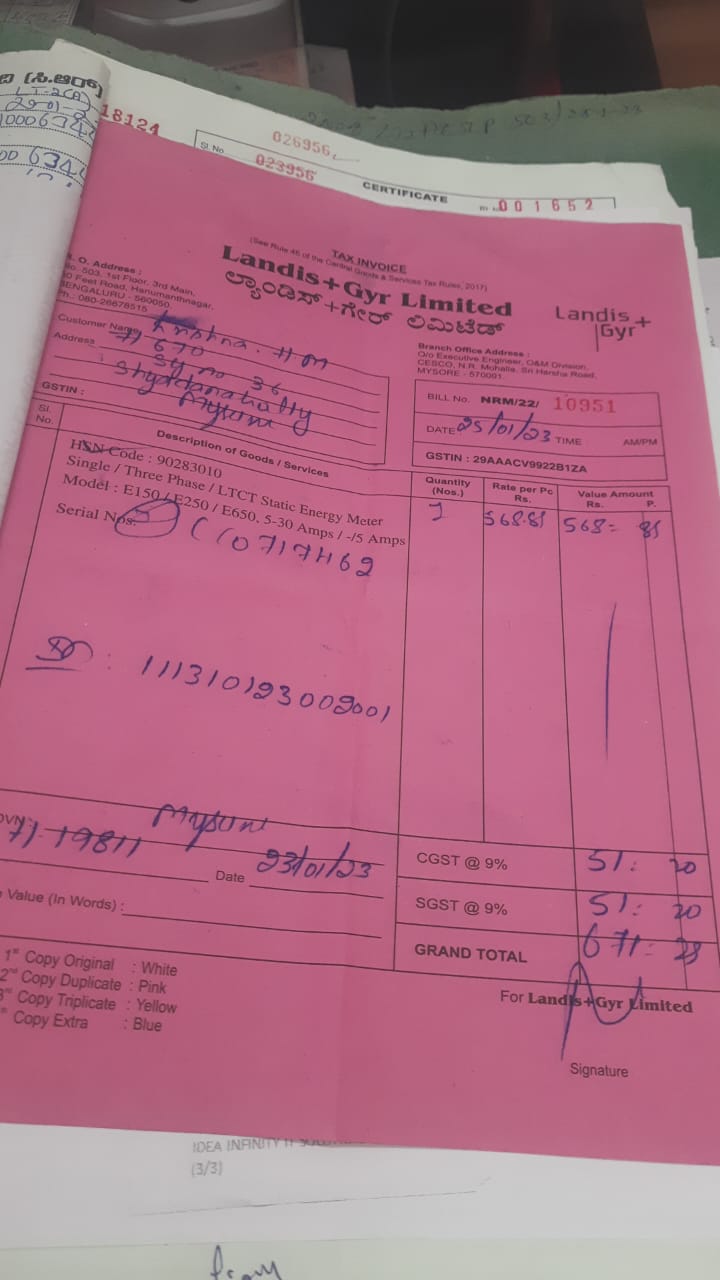 ಐ (ಸಿ.ಆರ್)
LT-2(A)
18124
Sl. No.
026956
023956
CERTIFICATE
001652
TAX INVOICE
(See Rule 46 of the Central Goods & Services Tax Rules, 2017)
Landis+Gyr Limited
ಲ್ಯಾಂಡಿಸ್+ಗೇರ್ ಲಿಮಿಟೆಡ್
Landis+
Gyr
O. Address :
No. 503, 1st Floor, 3rd Main,
Feet Road, Hanumanthnagar,
BENGALURU - 560050.
Ph.: 080-26678515
Customer Name Krishna. HM
Address 71 670
Sy no 36
Shyadanahally
Mysuru
GSTIN :
Branch Office Address :
O/o Executive Engineer, O&M Division,
CESCO, N.R. Mohalla, Sri Harsha Road,
MYSORE - 570001.
BILL No. NRM/22/ 10951
DATE 25/01/23 TIME AM/PM
GSTIN : 29AAACV9922B1ZA
Sl. No.
Description of Goods / Services
Quantity (Nos.)
Rate per Pc Rs.
Value Amount Rs. P.
HSN Code : 90283010
Single / Three Phase / LTCT Static Energy Meter
Model : E150 / E250 / E650, 5-30 Amps / -/5 Amps
1 568.81 568= 81
Serial Nos.
:
Mysuru
71-19811
Date 23/01/23
Value (In Words) :
CGST @ 9% 51: 20
SGST @ 9% 51: 20
GRAND TOTAL 671:
1st Copy Original : White
2nd Copy Duplicate : Pink
Copy Triplicate : Yellow
Copy Extra : Blue
For Landis+Gyr Limited
Signature
IDEA INFINITY IT
(3/3)